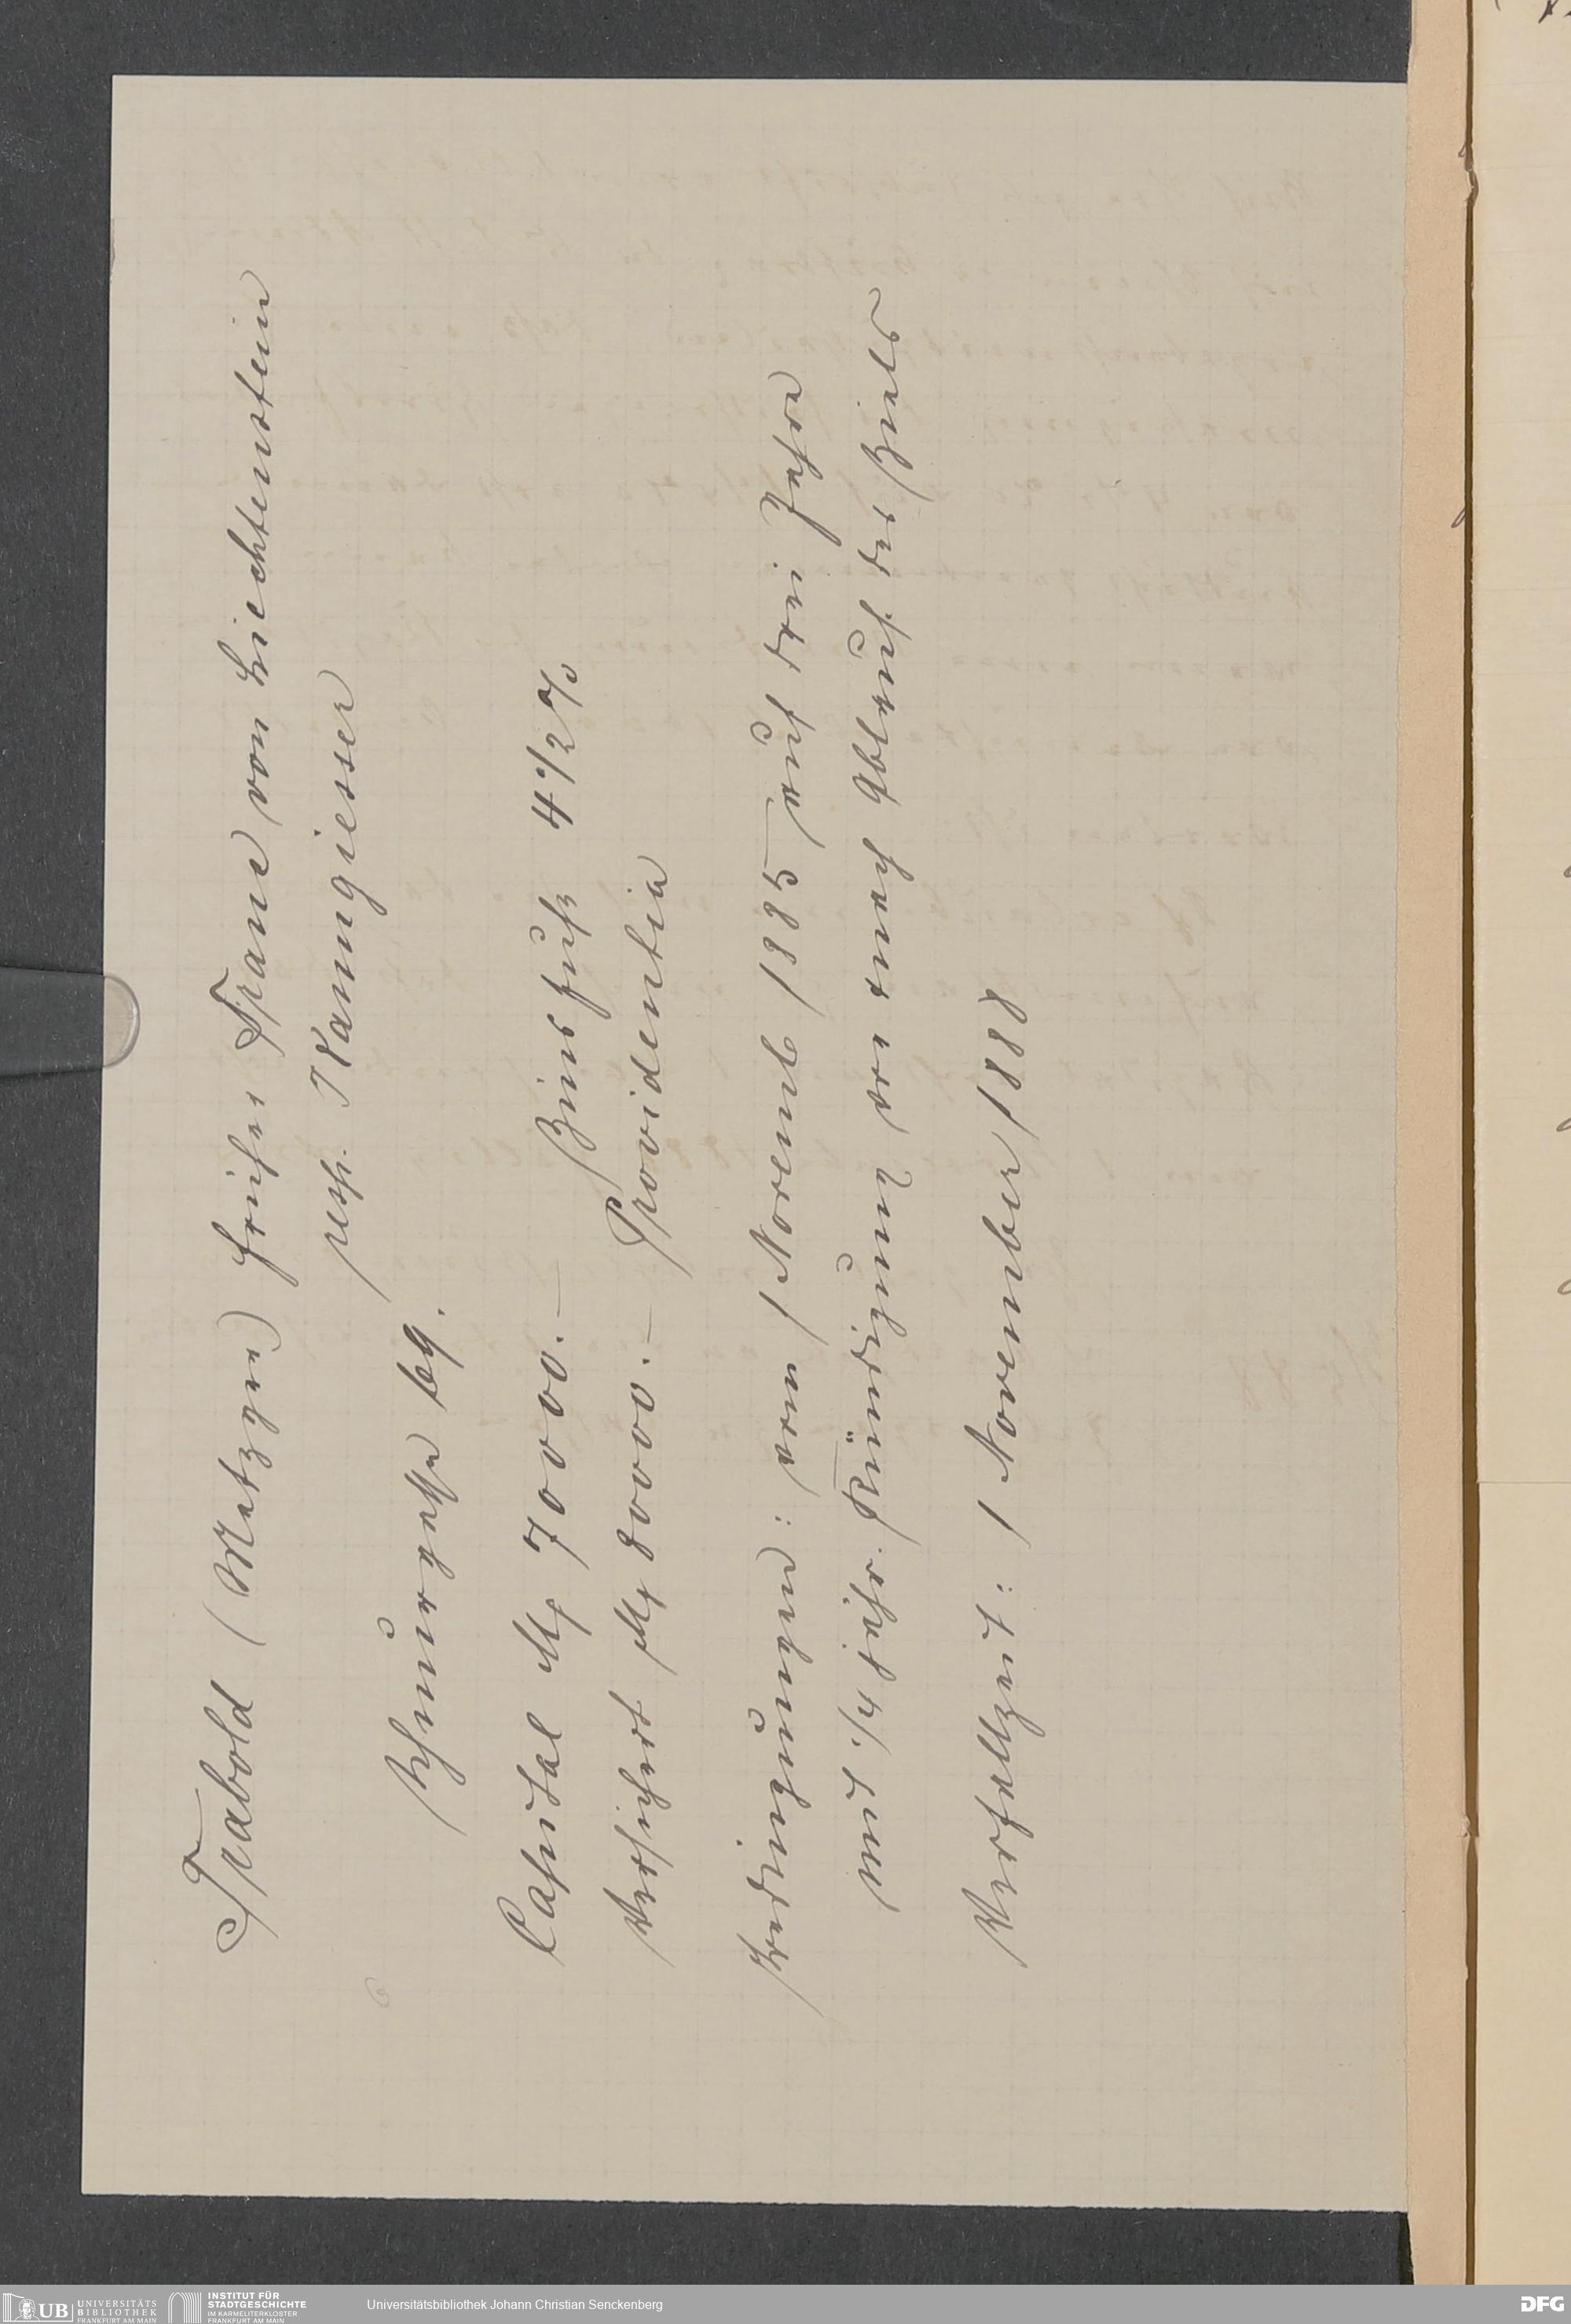 Trabold (Metzger) früher Frau von Liechtenstein
resp. Kanngiesser
Schnurgasse 69.
Capital M 70000.— Zinsfuß 4 1/2 %
Versichert M 80000.— Providentia
Bedingungen: vom 1 Novemb 1885 auf drei Jahre
mit 1/4 jähr. Kündigung vor & nach Ablauf des Ziels
Verfallzeit: 1 November 1888
UB UNIVERSITÄTS BIBLIOTHEK FRANKFURT AM MAIN
INSTITUT FÜR STADTGESCHICHTE IM KARMELITERKLOSTER FRANKFURT AM MAIN
Universitätsbibliothek Johann Christian Senckenberg
DFG